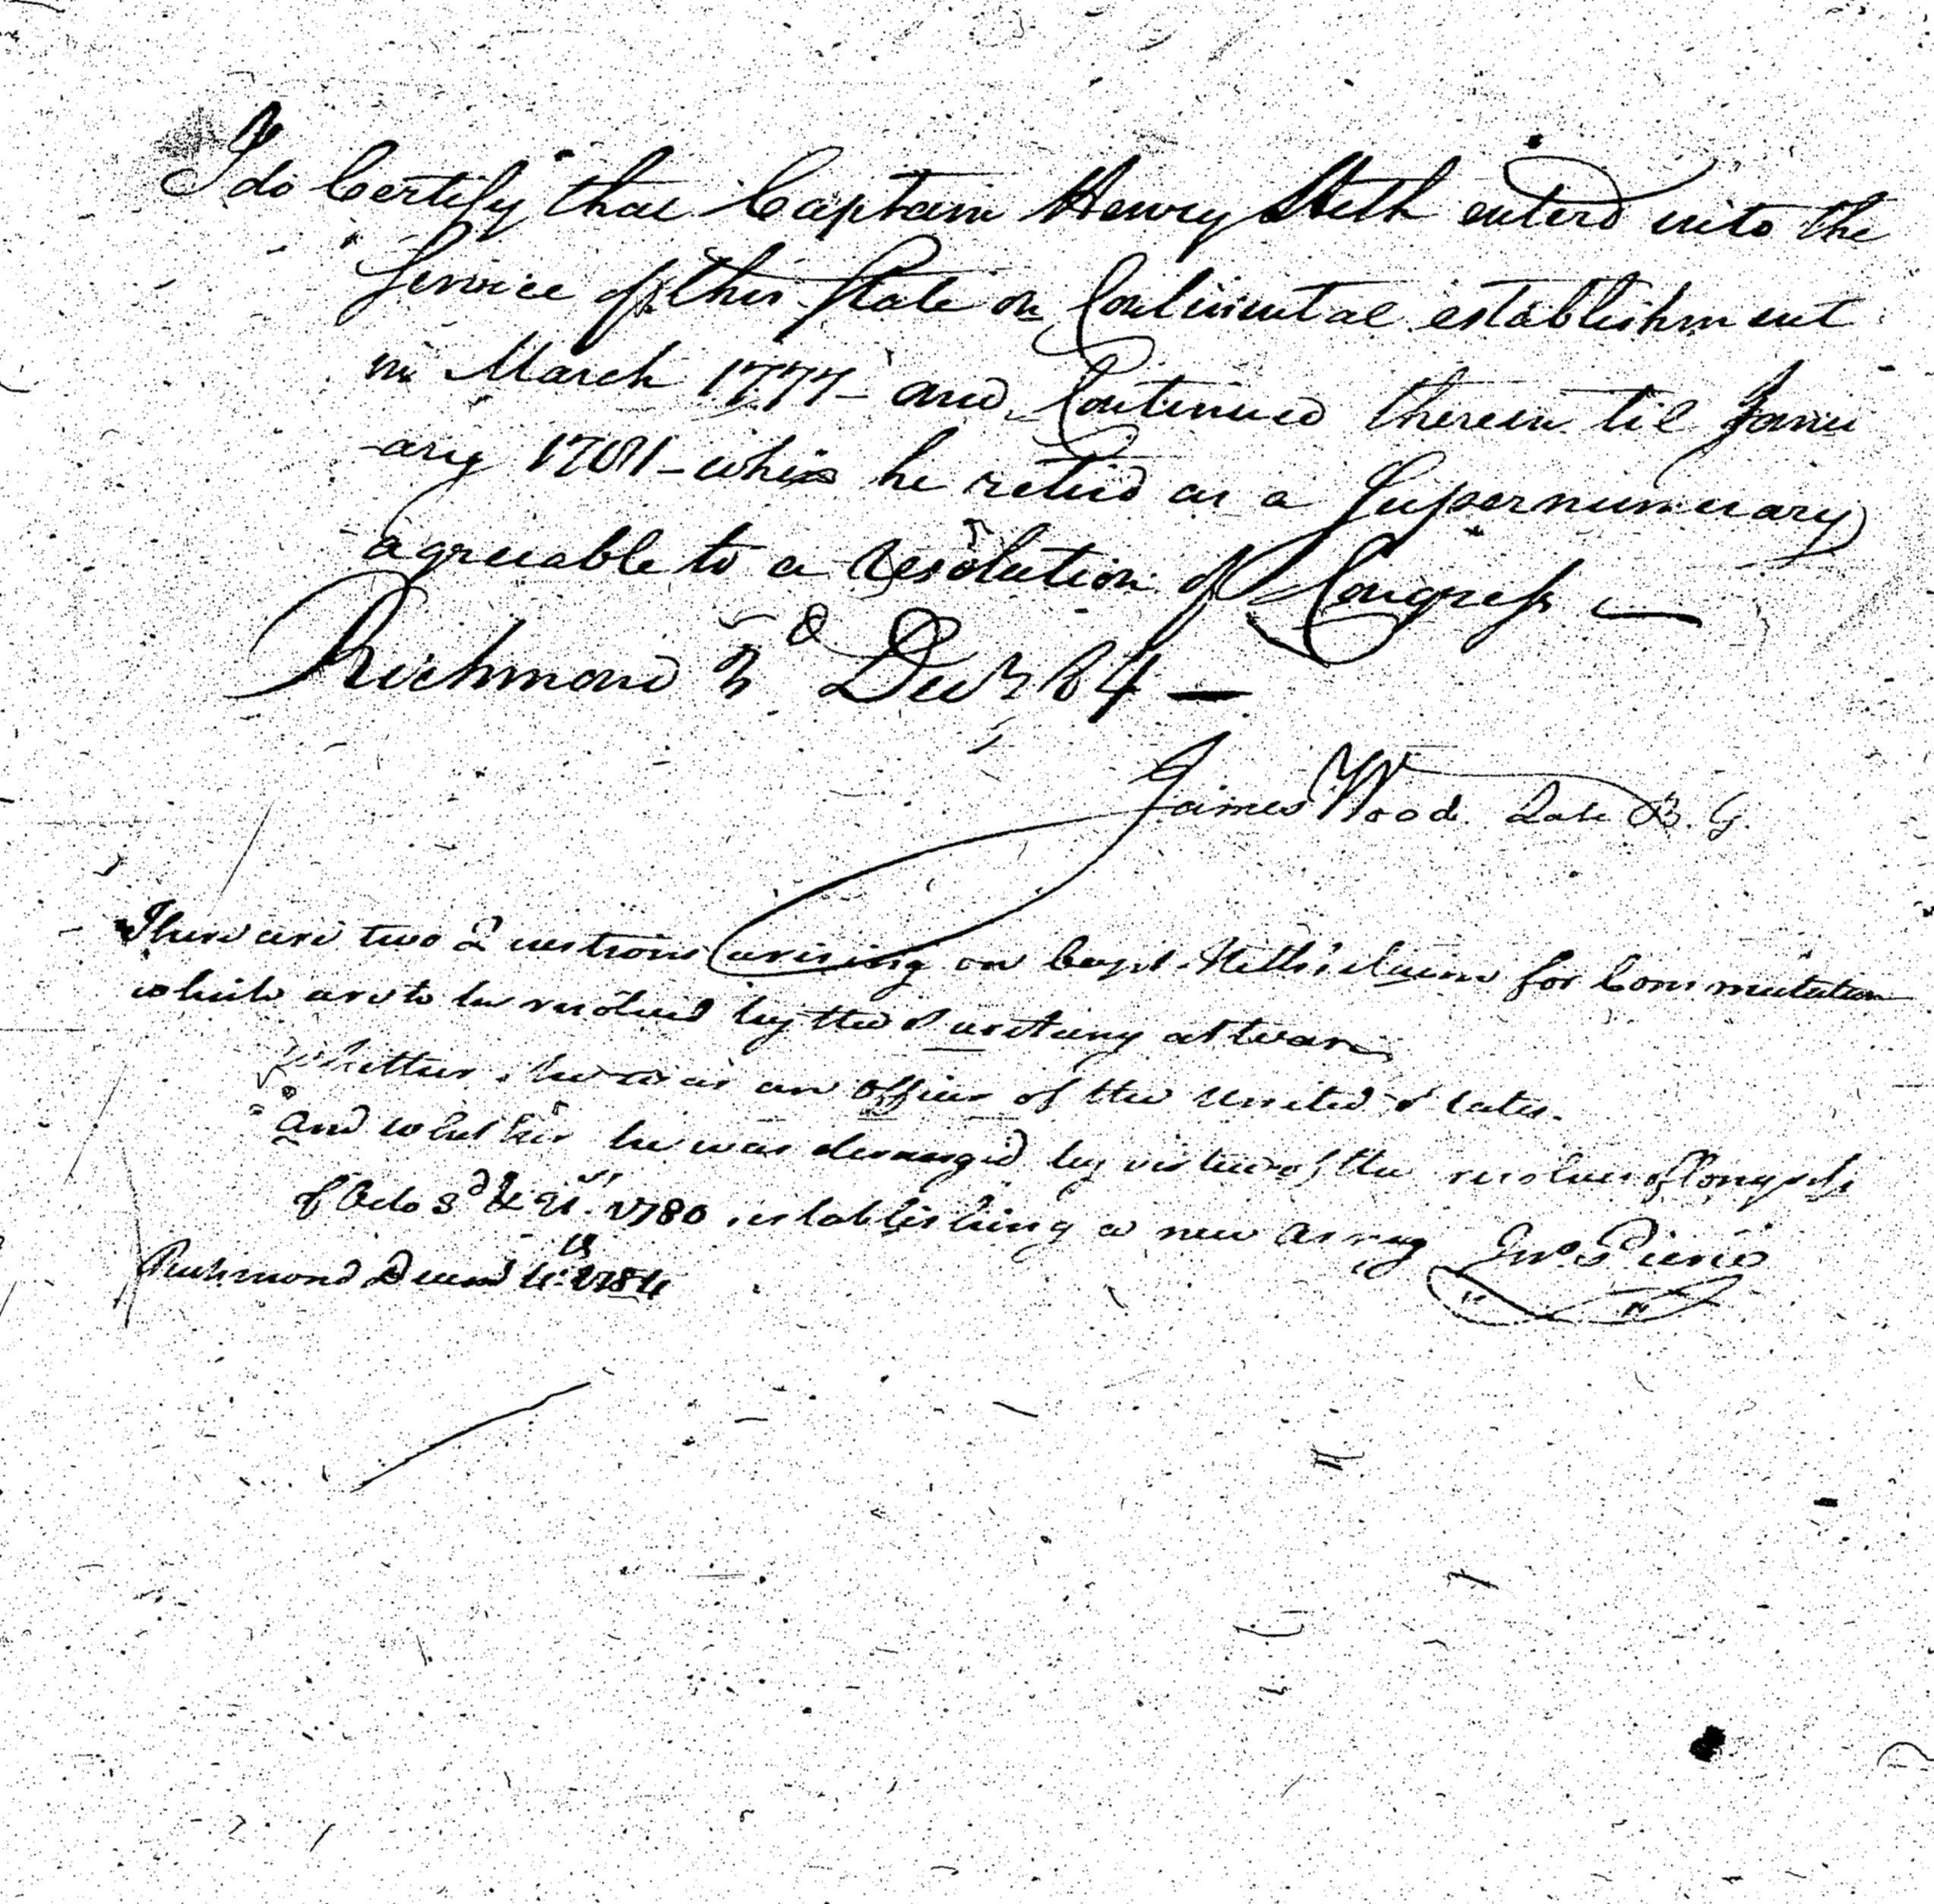 I do Certify that Captain Henry Heth enterd into the
Service of this State on Continental establishment
in March 1777 - and Continued therein til Janu
-ary 1781 - when he retird as a Supernumerary
agreeable to a resolution of Congress —
Richmond 3d Decr 84 —
James Wood. Late B. G.
There are two Questions arising on Capt. Heth's claim for Commutation
which are to be resolved by the Secretary at war
Whether he was an Officer of the United States.
And whether he was deranged by virtue of the resolves of Congress
of Octo 3d & 21st. 1780 establishing a new Arrag
Jno. Pierce
Richmond Decem 4th 1784